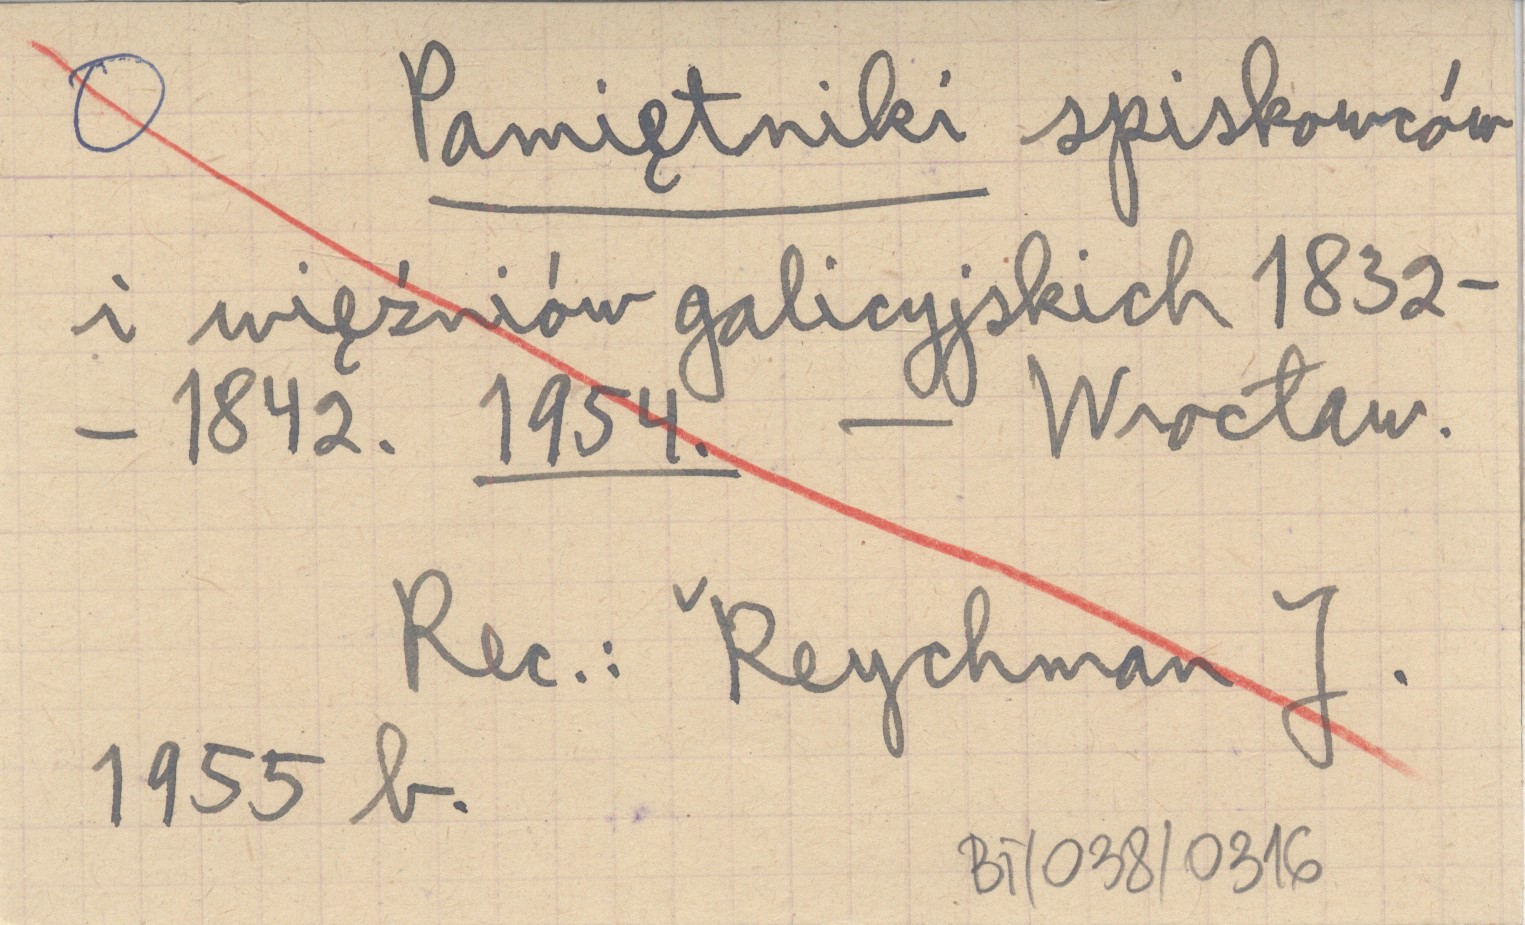 Pamiętniki spiskowców
i więźniów galicyjskich 1832-
- 1842. 1954. — Wrocław.
Rec.: Reychman J.
1955 b.
BI/038/0316